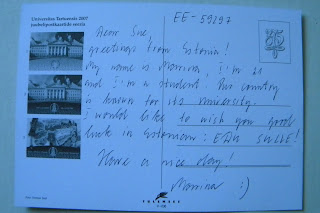 Universitas Tartuensis 2007
juubelipostkaartide seeria
EE-59197
Dear Sue,
greetings from Estonia!
My name is Marina, I'm 21
and I'm a student. Our country
is known for its university.
I would like to wish you good
luck in Estonian: EDU SULLE!
Have a nice day!
Marina :)